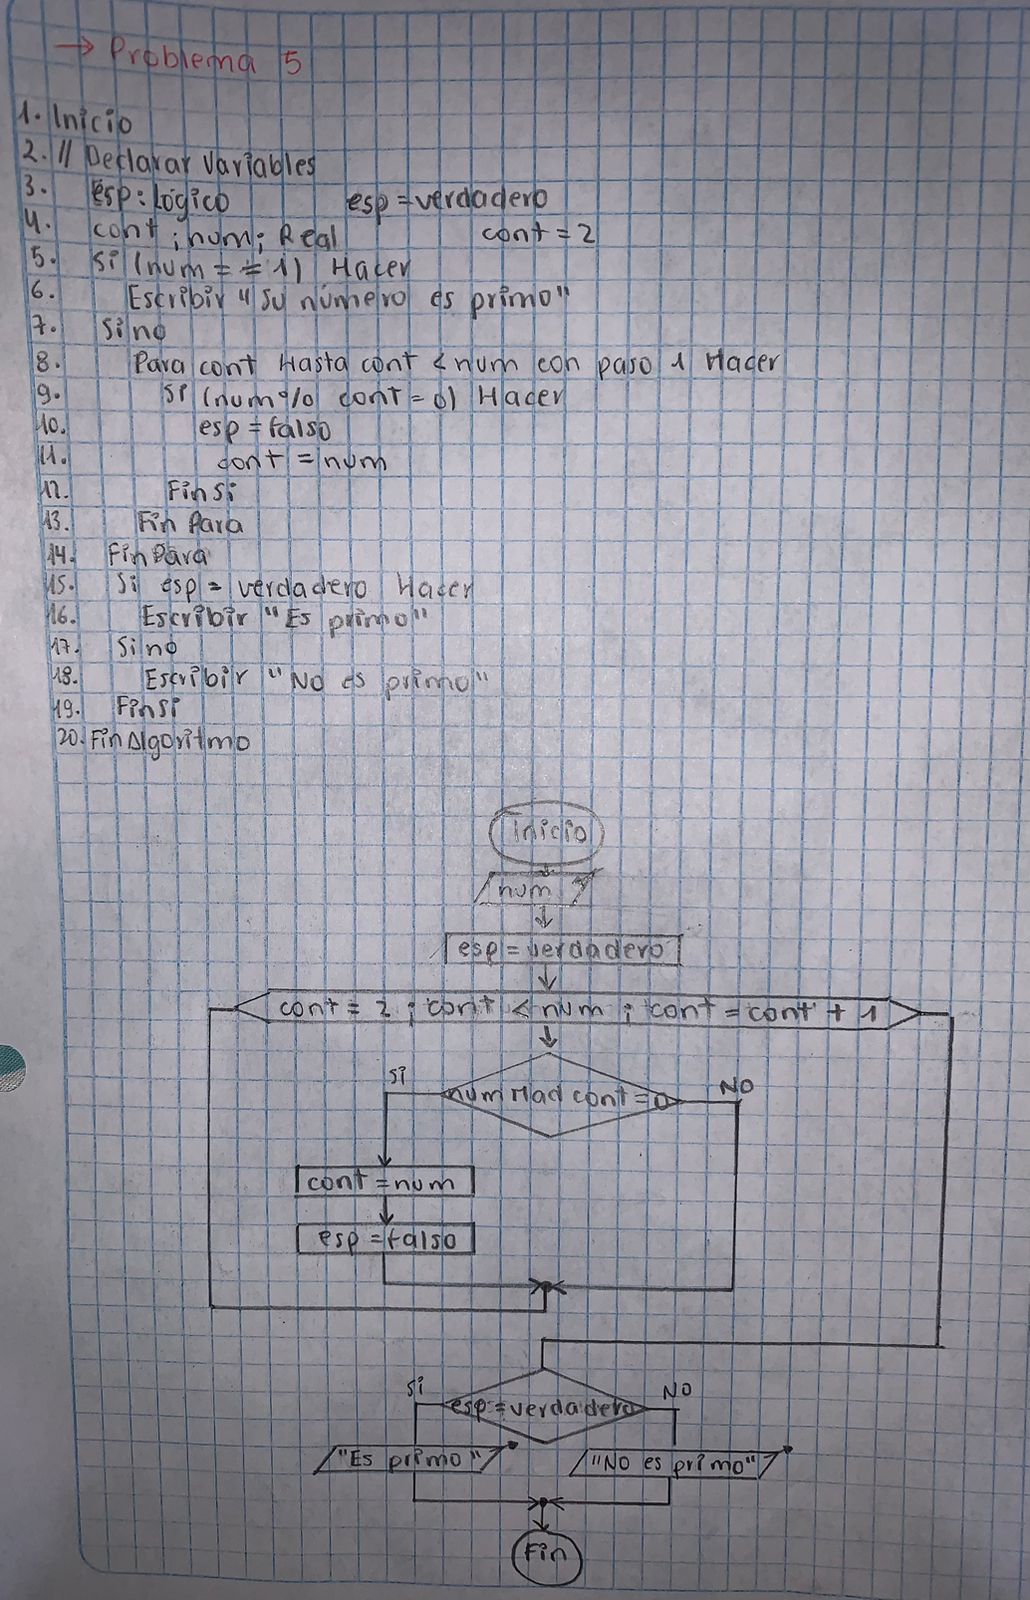 → Problema 5
1. Inicio
2. // Declarar Variables
3. esp: Lógico esp = verdadero
4. cont ; num ; Real cont = 2
5. Si (num = = 1) Hacer
6. Escribir "Su número es primo"
7. Sino
8. Para cont Hasta cont < num con paso 1 Hacer
9. Si (num % cont = 0) Hacer
10. esp = falso
11. cont = num
12. FinSi
13. Fin Para
14. FinPara
15. Si esp = verdadero Hacer
16. Escribir "Es primo"
17. Sino
18. Escribir "No es primo"
19. FinSi
20. FinAlgoritmo
inicio
num
esp = verdadero
cont = 2 ; cont < num ; cont = cont + 1
Si
num Mad cont = 0
NO
cont = num
esp = falso
Si
esp = verdadero
NO
"Es primo"
"No es primo"
Fin